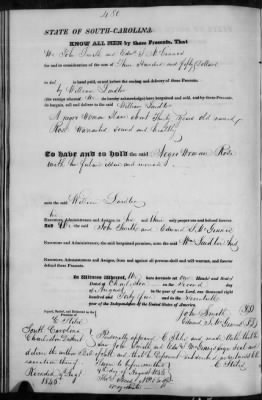 450
STATE OF SOUTH-CAROLINA.
KNOW ALL MEN by these Presents, That
We John Smith and Edwd S. McGinnis
for and in consideration of the sum of Three Hundred and fifty Dollars
to us in hand paid, at and before the sealing and delivery of these Presents,
by William Sandler
(the receipt whereof We do hereby acknowledge) have bargained and sold, and by these Presents,
do bargain, sell and deliver to the said William Sandler
A negro Woman Slave about Thirty Years old named
Rose Warranted sound and healthy
To have and to hold the said Negro Woman Rose
with the future issue and increase
unto the said William Sandler
his
Executors, Administrators and Assigns, to his and their only proper use and behoof forever.
And We the said John Smith and Edward S. McGinnis
Executors and Administrators, the said bargained premises, unto the said Wm Sandler his
Executors, Administrators and Assigns, from and against all persons shall and will warrant, and forever
defend these Presents.
In Witness Whereof, We have hereunto set our Hands and Seals
Dated at Charleston on the Second day
of August in the year of our Lord, one thousand eight
hundred and forty five and in the Seventieth
year of the Independence of the United States of America.
Signed, Sealed and Delivered in the Presence of
John Smith
Edward S. McGinnis
South Carolina
Charleston District
Personally appeared and made Oath that he
saw John Smith and Edwd S. McGinnis sign seal and
deliver the within Bill of Sale
Sworn to before me
August 1845
Recorded